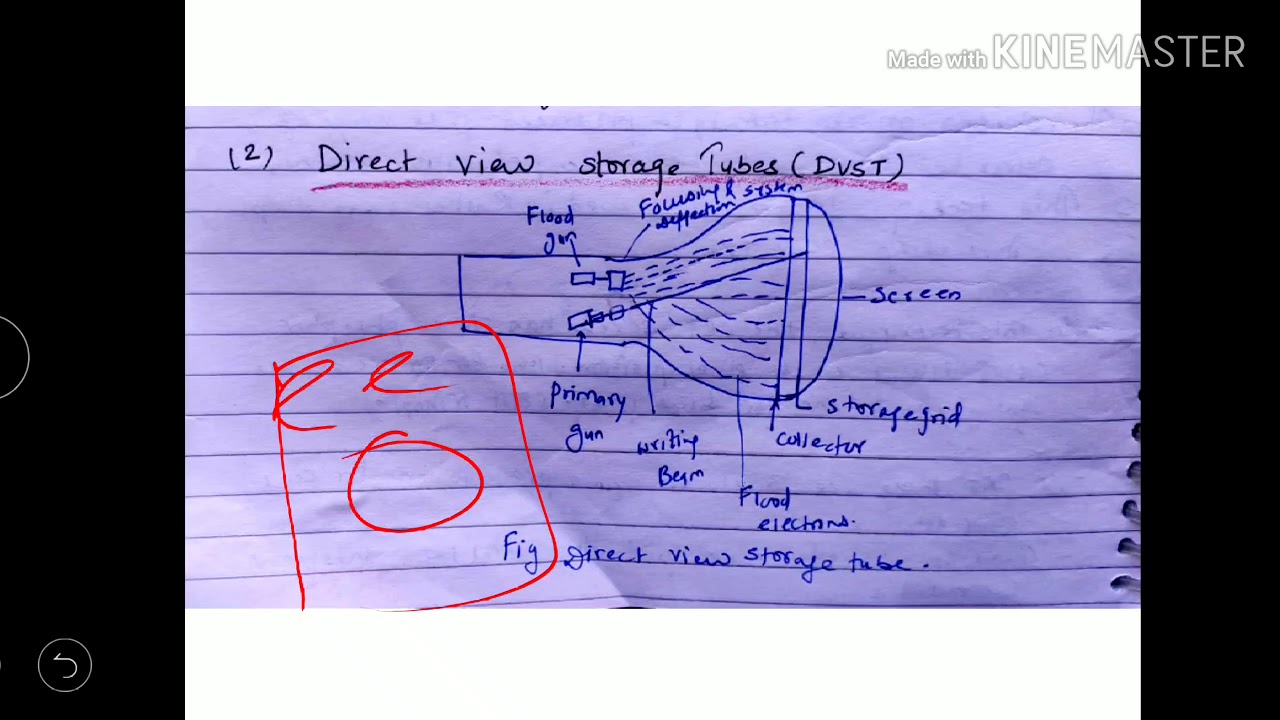 Made with KINEMASTER
(2) Direct view storage Tubes (DVST)
Focusing & system
Deflection
Flood
gun
screen
Primary
gun
storage grid
collector
writing
Beam
Flood
electrons.
Fig Direct view storage tube.